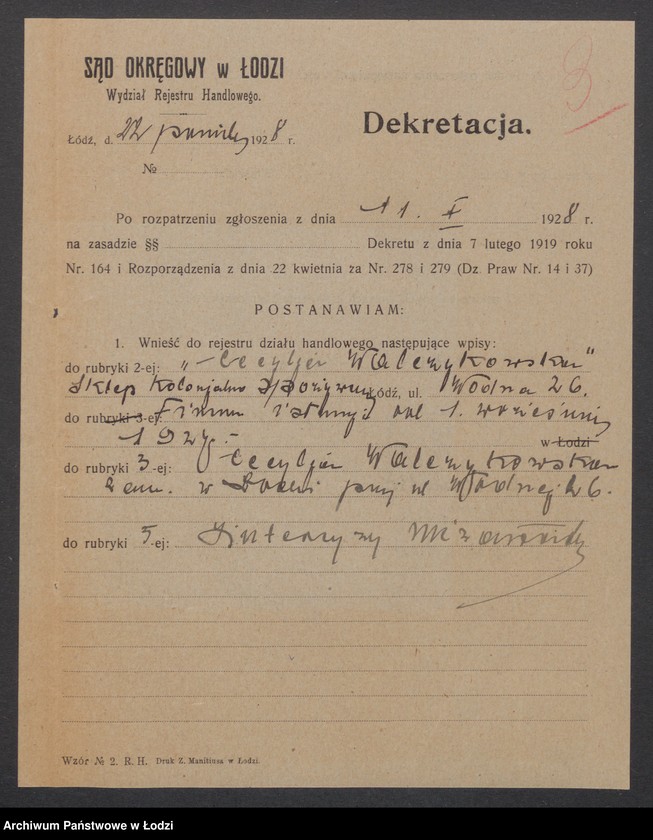 SĄD OKRĘGOWY w ŁODZI
Wydział Rejestru Handlowego.
3
Dekretacja.
Łódź, d. 22 1928 r.
№
Po rozpatrzeniu zgłoszenia z dnia 11. X 1928 r.
na zasadzie §§ Dekretu z dnia 7 lutego 1919 roku
Nr. 164 i Rozporządzenia z dnia 22 kwietnia za Nr. 278 i 279 (Dz. Praw Nr. 14 i 37)
POSTANAWIAM:
1. Wnieść do rejestru działu handlowego następujące wpisy:
do rubryki 2-ej: „Cecylja Walczykowska”
Sklep kolonjalno spożywczy Łódź, ul. Wodna 26.
do rubryki 3-ej: Firma istnieje od 1. września
1927.
w Łodzi
do rubryki 3-ej: Cecylja Walczykowska
zam. w Łodzi przy ul Wodnej 26.
do rubryki 5-ej: Intercyzy nie zawarła
Wzór № 2. R. H. Druk Z. Manitiusa w Łodzi.
Archiwum Państwowe w Łodzi